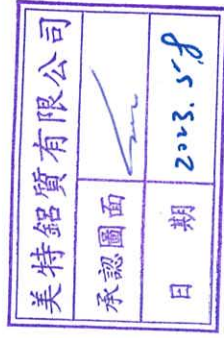 美特鋁質有限公司
承認圖面
日期 2023.5.8